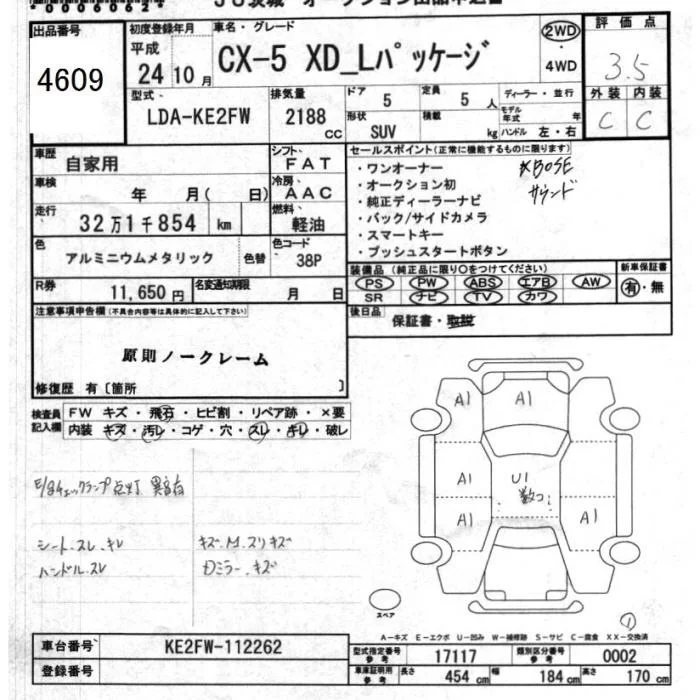 出品番号
4609
初度登録年月
平成
24年10月
車名・グレード
CX-5 XD_Lパッケージ
2WD
・
4WD
評価点
3.5
外装 内装
C C
型式
LDA-KE2FW
排気量
2188
CC
ドア
5
定員
5人
形状
SUV
積載
kg
ディーラー・並行
モデル年式
年
ハンドル 左・右
車歴
自家用
シフト
FAT
車検
年 月( 日)
冷房
AAC
走行
32万1千854 km
燃料
軽油
色
アルミニウムメタリック
色替
色コード
38P
R券
11,650円
名変通知期限
月 日
セールスポイント(正常に機能するものに限ります)
・ワンオーナー
・オークション初
・純正ディーラーナビ
・バック/サイドカメラ
・スマートキー
・プッシュスタートボタン
※BOSE
サウンド
装備品(純正品に限り○をつけてください)
PS PW ABS エアB AW
SR ナビ TV カワ
新車保証書
有・無
後日品
保証書・取説
注意事項申告欄(不具合内容等は具体的に記入して下さい)
原則ノークレーム
修復歴 有〔箇所 〕
検査員
記入欄
FW キズ・飛石・ヒビ割・リペア跡・×要
内装 キズ・汚レ・コゲ・穴・スレ・キレ・破レ
E/gチェックランプ点灯 異音有
シート.スレ.キレ
ハンドル.スレ
キズ.M.スリキズ
Dミラー.キズ
A1 A1
A1 U1
数コ
A1 A1
スペア
①
A－キズ E－エクボ U－凹み W－補修跡 S－サビ C－腐食 XX－交換済
車台番号
KE2FW-112262
登録番号
型式指定番号
参考
17117
類別区分番号
参考
0002
車庫証明用
参考
長さ
454cm
幅
184cm
高さ
170cm